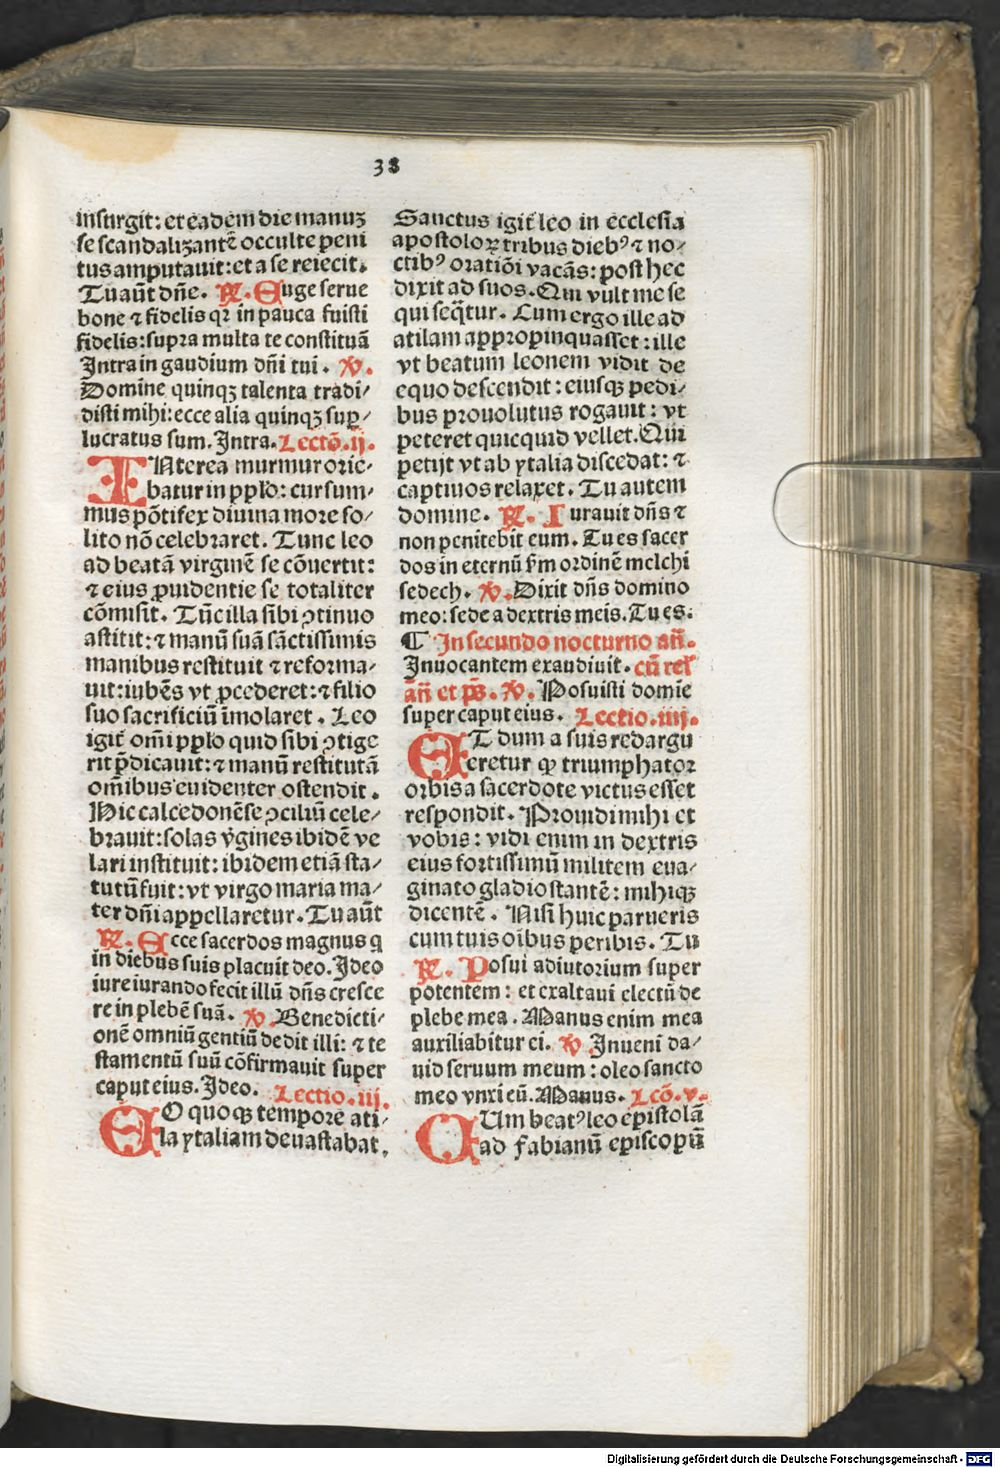 38
insurgit: et eadem die manuʒ
se scandaliʒantē occulte peni
tus amputauit: et a se reiecit.
Tu aūt dn̄e. ℟. Euge serue
bone ⁊ fidelis qꝛ in pauca fuisti
fidelis: supra multa te constituā
Intra in gaudium dn̄i tui. ℣.
Domine quinqꝫ talenta tradi⸗
disti mihi: ecce alia quinqꝫ suꝑ⸗
lucratus sum. Intra. Lectō. ij.
INterea murmur orie⸗
batur in ppl̄o: cur sum⸗
mus pōtifex diuina more so⸗
lito nō celebraret. Tunc leo
ad beatā virginē se cōuertit:
⁊ eius ꝓuidentie se totaliter
cōmisit. Tūc illa sibi ꝯtinuo
astitit: ⁊ manū suā sāctissimis
manibus restituit ⁊ reforma⸗
uit: iubēs vt ꝓcederet: ⁊ filio
suo sacrificiū īmolaret. Leo
igit̄ om̄i ppl̄o quid sibi ꝯtige
rit p̄dicauit: ⁊ manū restitutā
om̄ibus euidenter ostendit.
Hic calcedonēse ꝯciliū cele⸗
brauit: solas v̄gines ibidē ve
lari instituit: ibidem etiā sta⸗
tutū fuit: vt virgo maria ma⸗
ter dn̄i appellaretur. Tu aūt
℟. Ecce sacerdos magnus q
in diebus suis placuit deo. Ideo
iure iurando fecit illū dn̄s cresce
re in plebē suā. ℣. Benedicti⸗
onē omniū gentiū dedit illi: ⁊ te
stamentū suū cōfirmauit super
caput eius. Ideo. Lectio. iij.
EO quoqꝫ tempore ati⸗
la ytaliam deuastabat.
Sanctus igit̄ leo in ecclesia
apostoloꝝ tribus diebꝰ ⁊ no⸗
ctibꝰ oratiōi vacās: post hec
dixit ad suos. Qui vult me se
qui seq̄tur. Cum ergo ille ad
atilam appropinquasset: ille
vt beatum leonem vidit de
equo descendit: eiusqꝫ pedi⸗
bus prouolutus rogauit: vt
peteret quicquid vellet. Qui
petijt vt ab ytalia discedat: ⁊
captiuos relaxet. Tu autem
domine. ℟. Iurauit dn̄s ⁊
non penitebit eum. Tu es sacer
dos in eternū s̄m ordinē melchi
sedech. ℣. Dixit dn̄s domino
meo: sede a dextris meis. Tu es.
¶ In secundo nocturno an̄.
Inuocantem exaudiuit. cū rel̄
an̄ et ps̄. ℣. Posuisti domīe
super caput eius. Lectio. iiij.
ET dum a suis redargu
eretur ꝙ triumphator
orbis a sacerdote victus esset
respondit. Prouidi mihi et
vobis: vidi enim in dextris
eius fortissimū militem eua⸗
ginato gladio stantē: mihiqꝫ
dicentē. Nisi huic parueris
cum tuis oībus peribis. Tu
℟. Posui adiutorium super
potentem: et exaltaui electū de
plebe mea. Manus enim mea
auxiliabitur ei. ℣ Inueni da⸗
uid seruum meum: oleo sancto
meo vnxi eū. Manus. Lcō. v.
CUm beatꝰ leo epistolā
ad fabianū episcopū
Digitalisierung gefördert durch die Deutsche Forschungsgemeinschaft - DFG